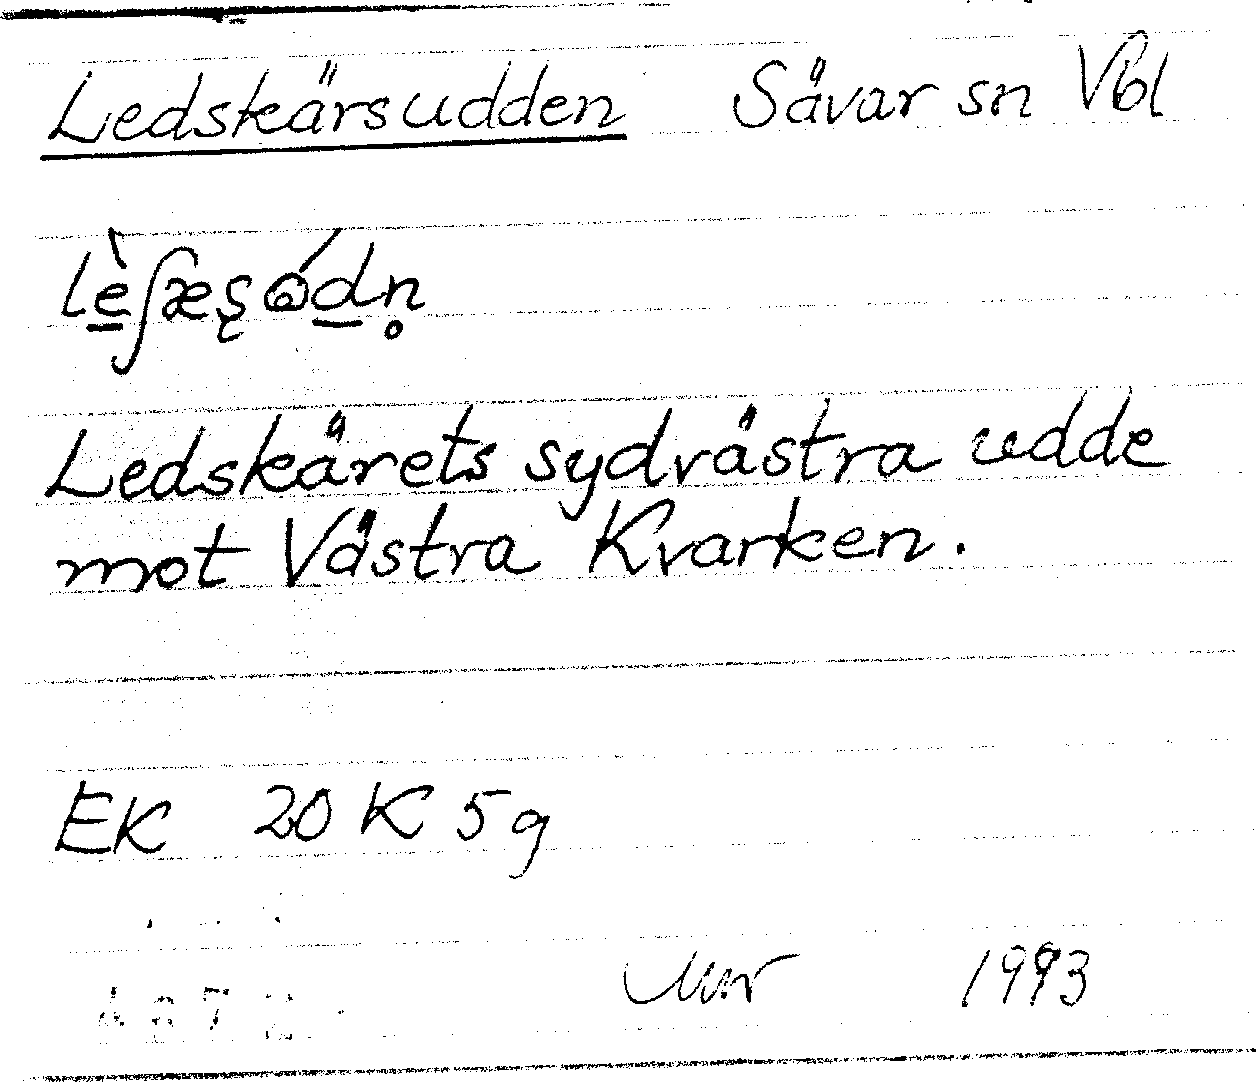 Ledskärsudden Sävar sn Vbl
lè̱ʃæʂɷ́ḏn̥
Ledskärets sydvästra udde
mot Västra Kvarken.
EK 20 K 5 g
1993